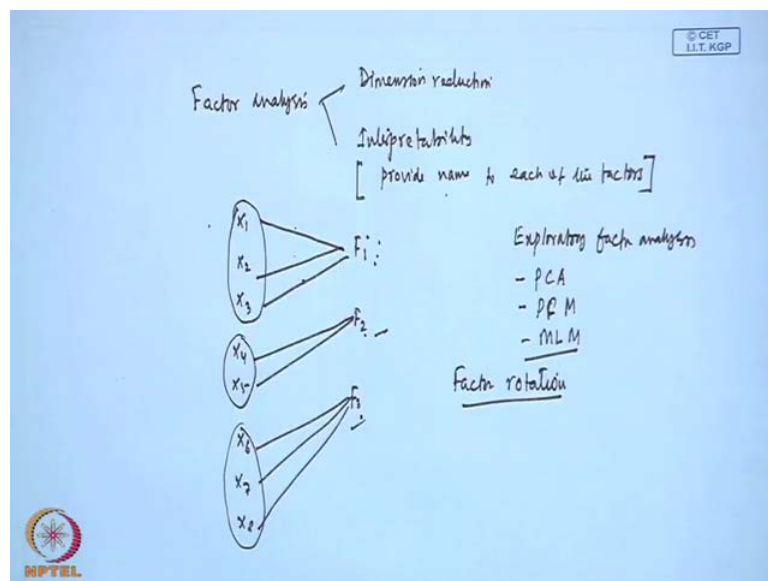 © CET
I.I.T. KGP
Factor analysis
Dimension reduction
Interpretability
[ provide name to each of the factors ]
X1
X2
X3
F1
X4
X5
F2
X6
X7
X8
F3
Exploratory factor analysis
- PCA
- PFM
- MLM
Factor rotation
NPTEL